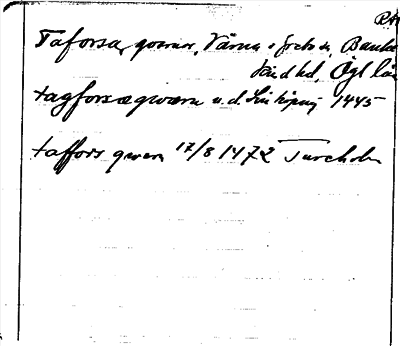 RA
Taforsa, qvarnar, Värna socken, Banke
kind hd, Ögl län
tagforsæqwærn u.d. Linköping 1445
taffors qwern 17/8 1472 Tureholm